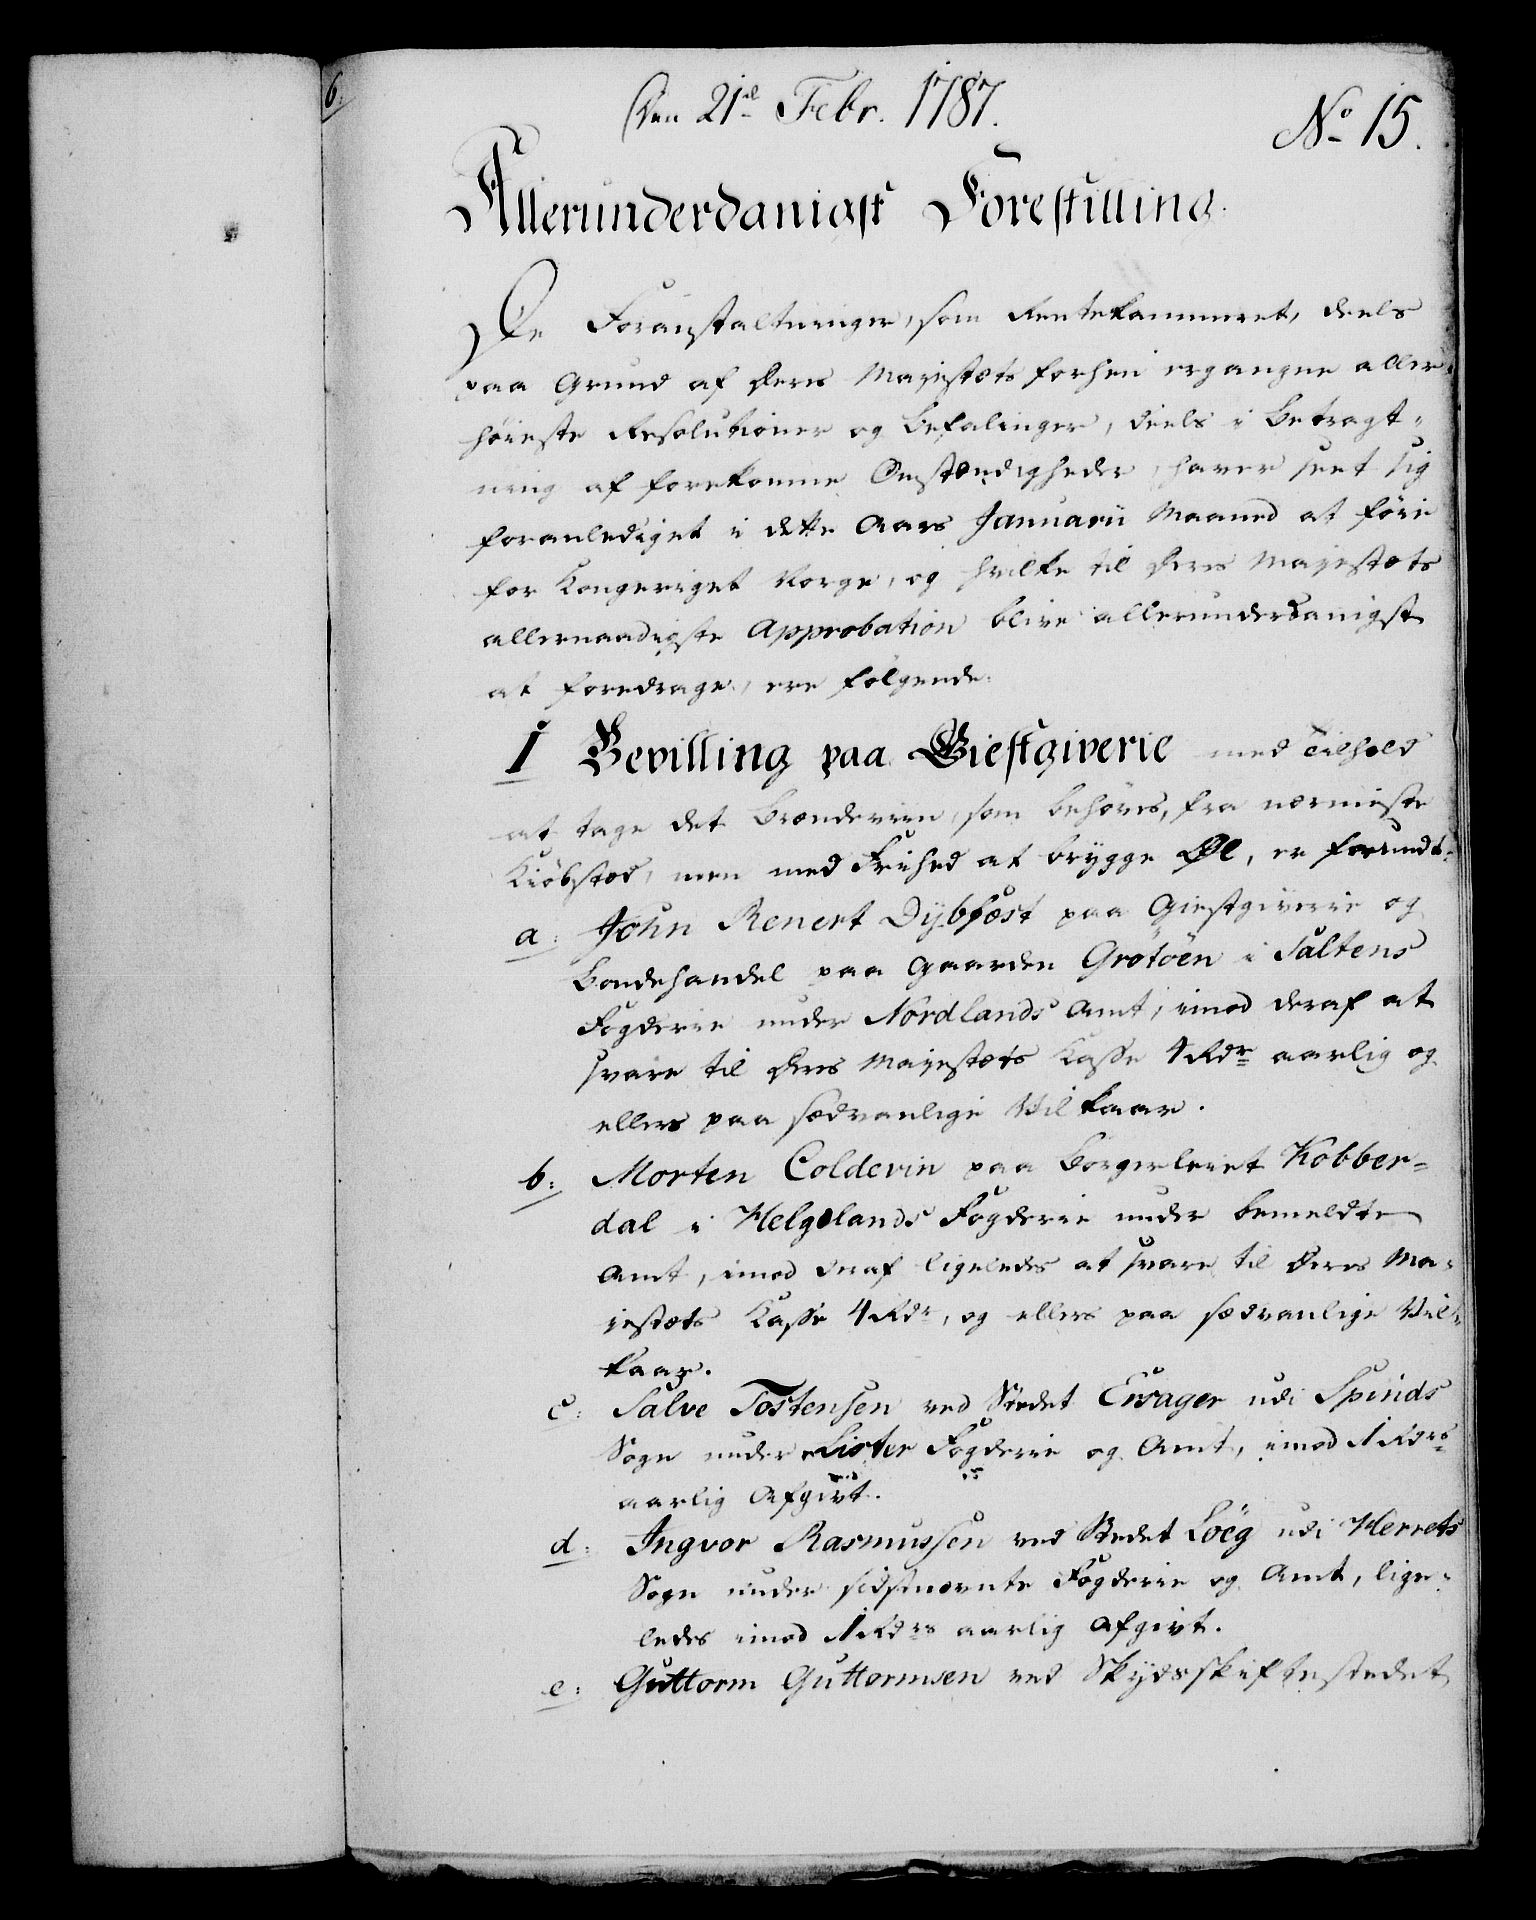 6.
Den 21de Febr. 1787.
No 15.
Allerunderdanigst Forestilling.
De Foranstaltninger, som Rentekammeret, deels
paa Grund af Deres Majestæts forhen ergangne aller-
høieste Resolutioner og Befalinger, deels i Betragt-
ning af forekomne Omstændigheder, haver seet sig
foranlediget i dette Aars Januarii Maaned at føie
for Kongeriget Norge, og hvilke til Deres Majestæts
allernaadigste Approbation blive allerunderdanigst
at foredrage, ere følgende:
1 Bevilling paa Giestgiverie med Tilhold
at tage det Brændeviin, som behøves, fra nærmeste
Kiøbstæd, men med Friehed at brygge Øl, er forundt:
a: John Renert Dybfæst paa Giestgiverie og
Bondehandel paa Gaarden Grøtøen i Saltens
Fogderie under Nordlands Amt, imod deraf at
svare til Deres Majestæts Kasse 4 Rdr aarlig og
ellers paa sædvanlige Vilkaar.
b: Morten Colderin paa Borgerleiet Kobber-
dal i Helgelands Fogderie under bemeldte
Amt, imod deraf ligeledes at svare til Deres Ma-
jestæts Kasse 4 Rdr, og ellers paa sædvanlige Vil-
kaar.
c: Salve Tostensen ved Stedet Eisager udi Spinds
Sogn under Lister Fogderie og Amt, imod 1 Rdrs
aarlig Afgivt.
d: Ingvor Rasmussen ved Stedet Loeg udi Herrets
Sogn under sidstnævnte Fogderie og Amt, lige-
ledes imod 1 Rdrs aarlig Afgivt.
e: Guttorm Guttormsen ved Skydsskiftestedet